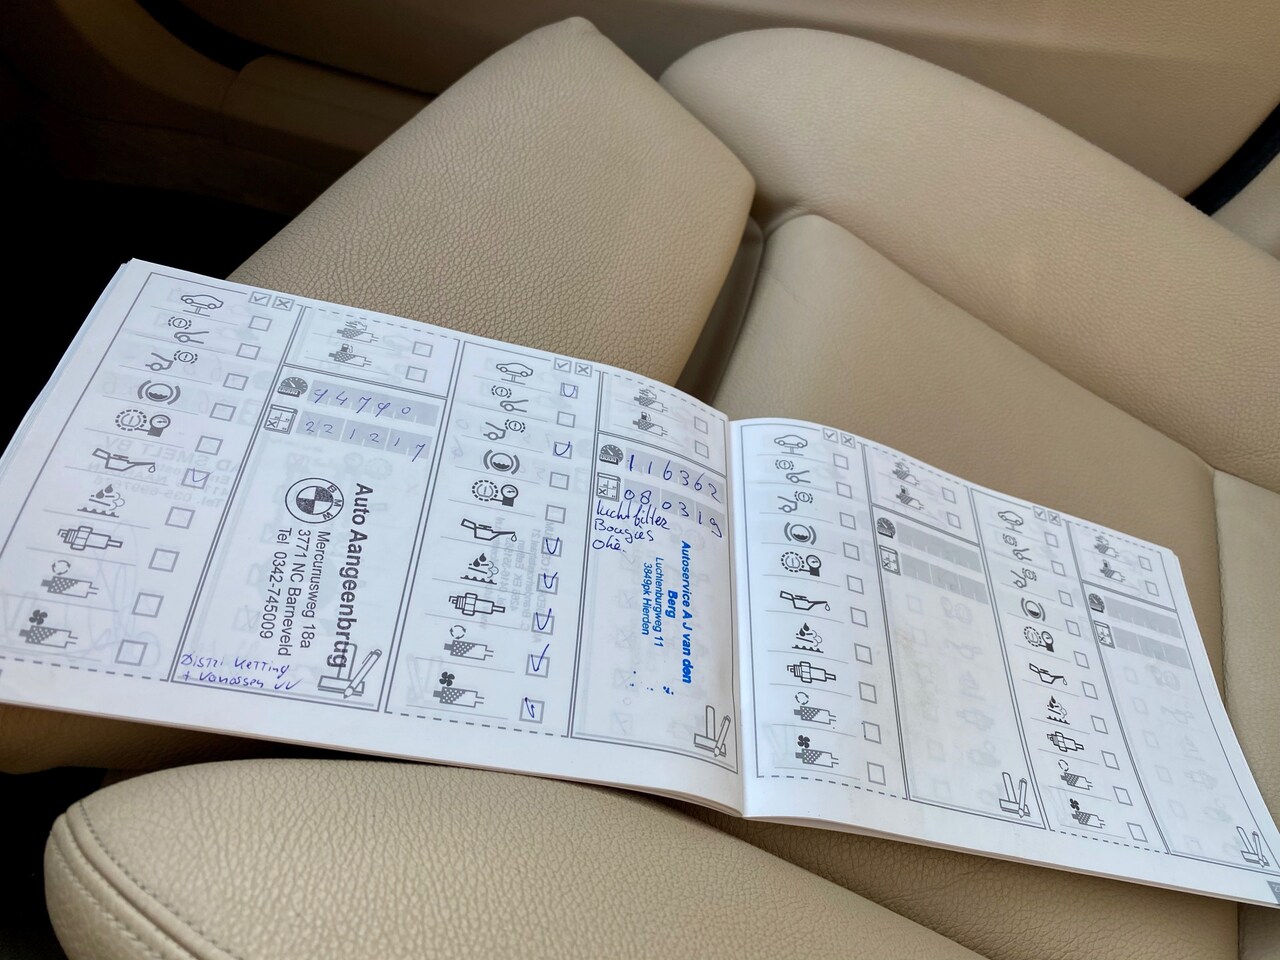 94790
221217
BMW
Auto Aangeenbrug
Mercuriusweg 18a
3771 NC Barneveld
Tel. 0342-745009
Distri Ketting
+ Vonassen VV
116362
080319
Luchtfilter
Bougies
Olie.
Autoservice A J van den
Berg
Luchenburgweg 11
3849pk Hierden